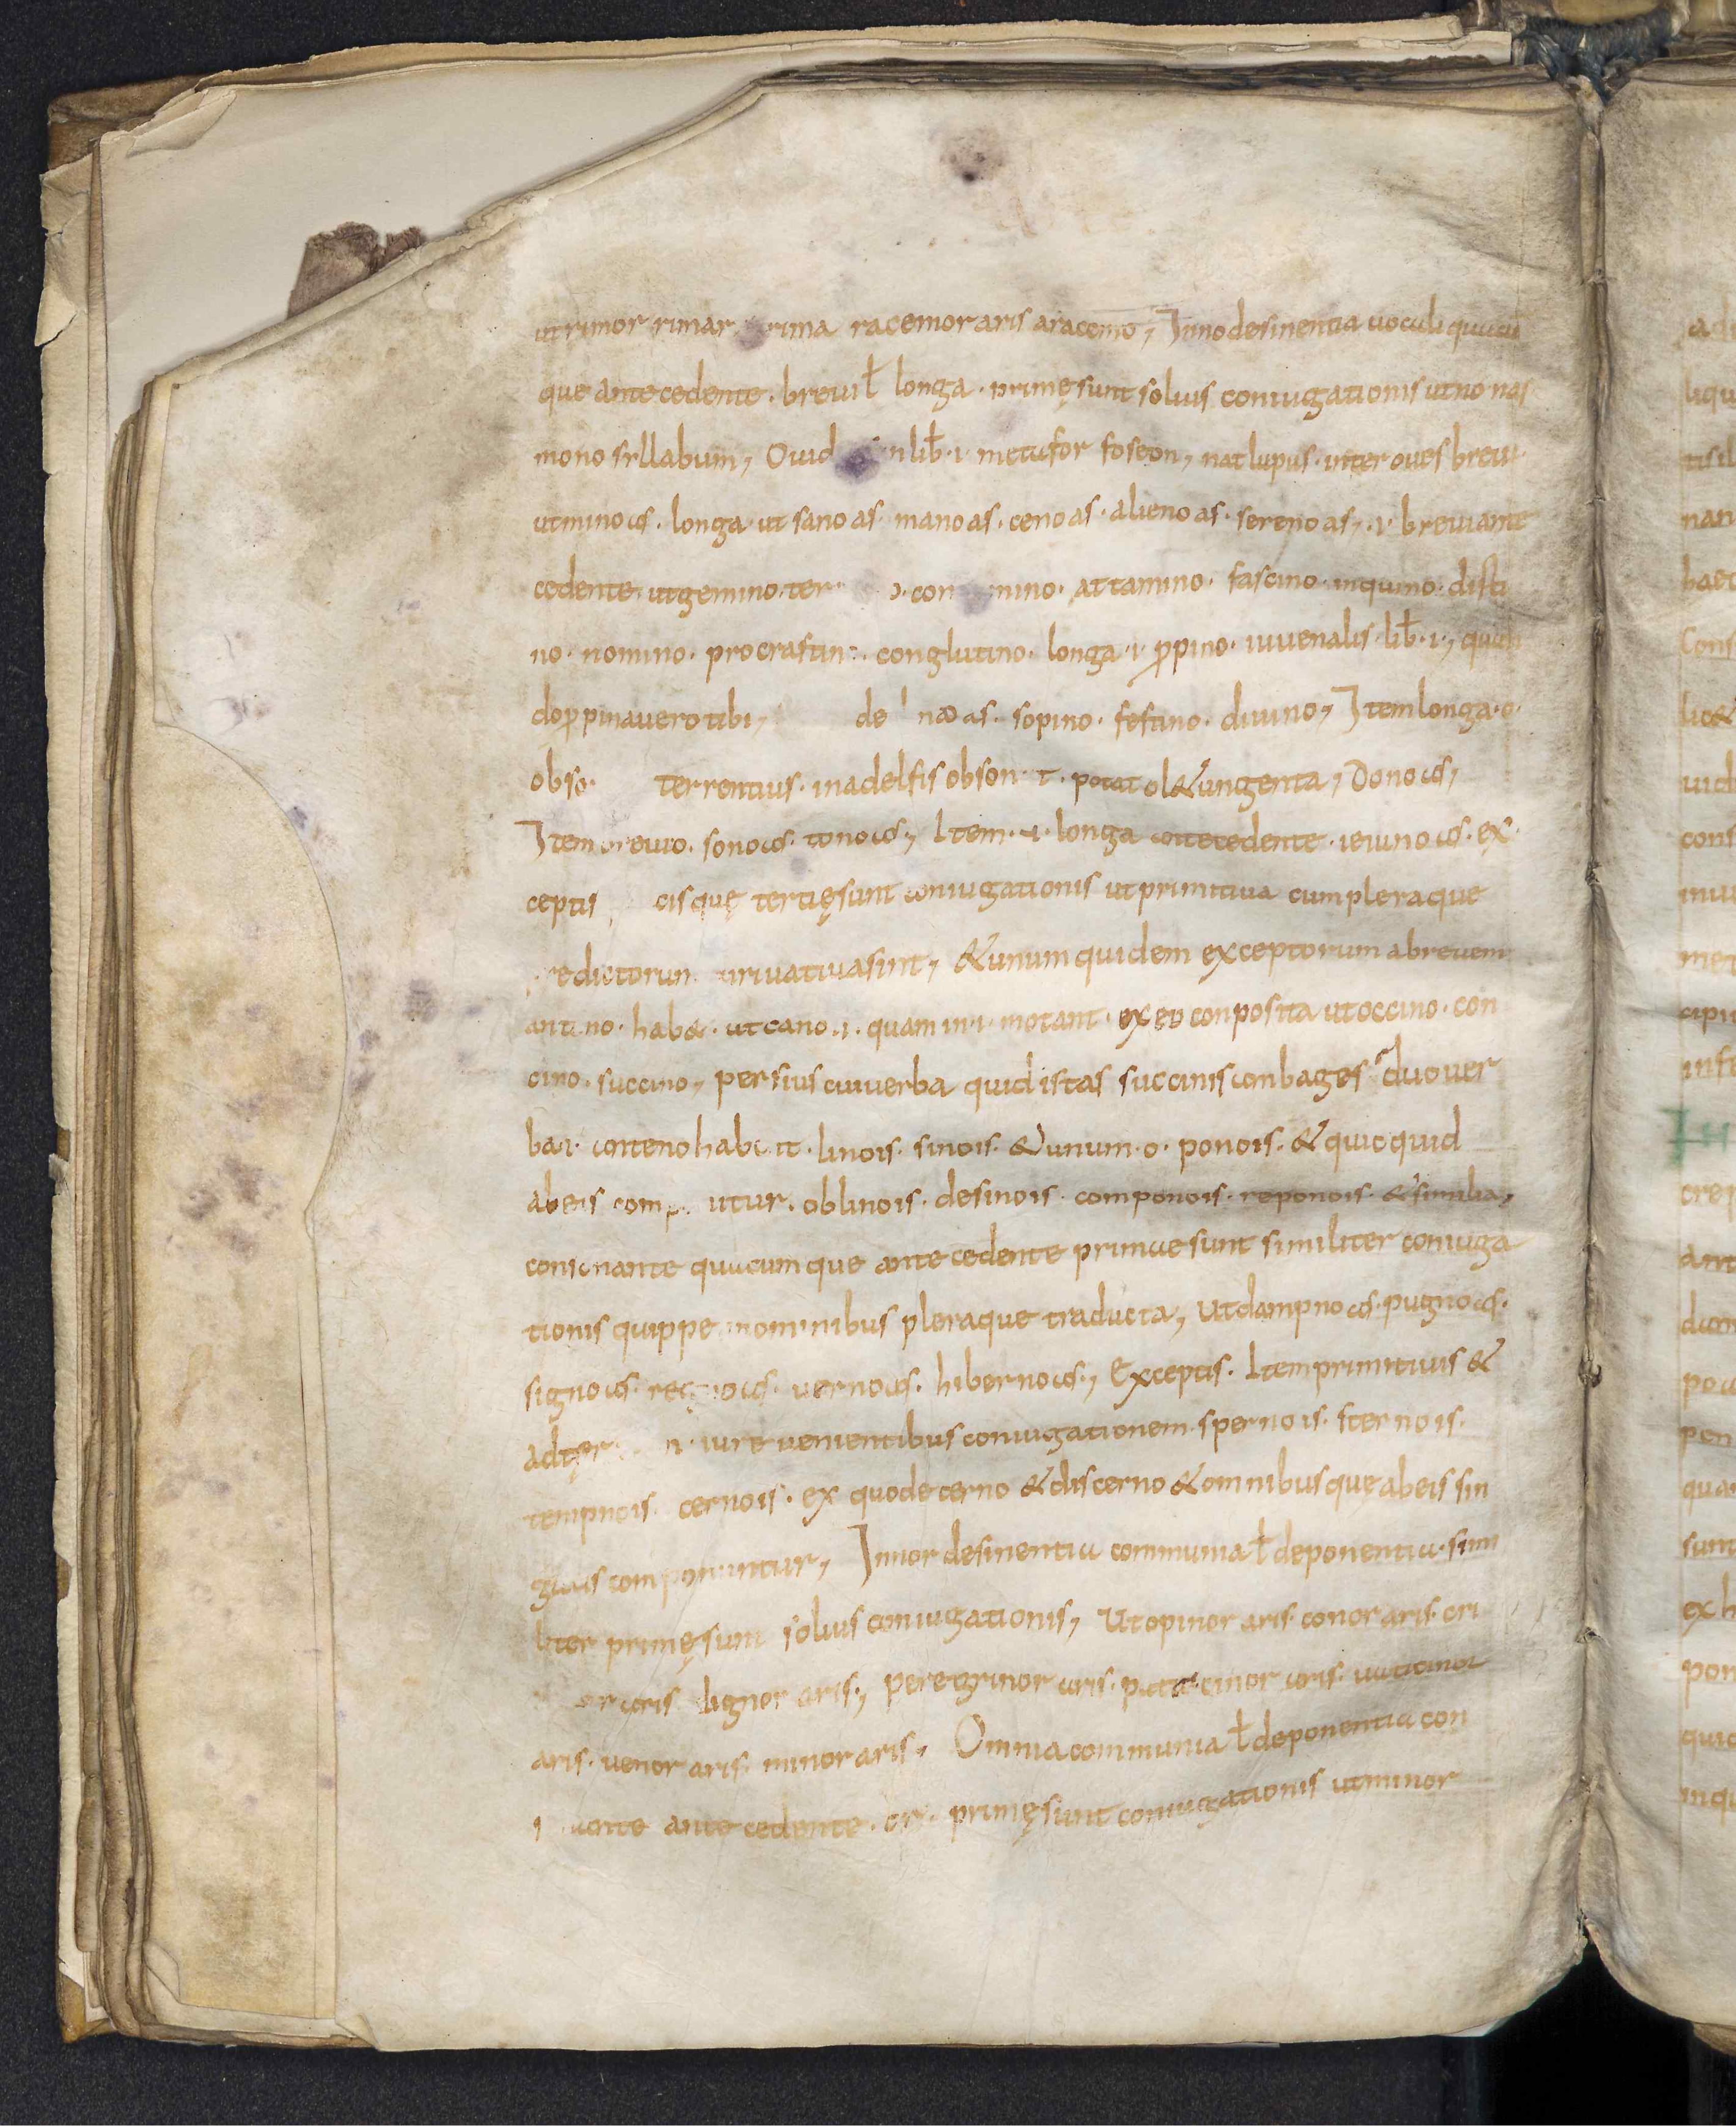 ut rimor rimar rima racemor aris a racemo, In no desinentia uocali quacū
que antecedente. breui ł longa. primę sunt solius coniugationis ut no nas
mono syllabum, Ouid in lib̄. i. metafor foseon, nat lupus. inter oues breui.
ut mino as. longa. ut sano as. mano as. ceno as. alieno as. sereno as,. i. breui ante
cedente. ut gemino. ter o. con mino. attamino. fascino. inquino. desti
no. nomino. procrastin. conglutino. longa. i. ꝓpino. iuuenalis. lib̄. i., quan
do ꝓpinauero tibi, de no as. sopino. festino. diuino, Item longa. o.
obso. terrentius. in adelfis obson t. potat ol& ungenta, Dono as,
Item breuio. sono as. tono as, Item. u. longa antecedente. ieiuno as. ex
cepti cis quę tertię sunt coniugationis ut primitiua cum pleraque
redictorun diriuatiua sint, & unum quidem exceptorum a breuem
ant no. hab&. ut cano. i. quam in. i. motant. ex eo conposita ut occino. con
cino. succino, persius cui uerba quid istas succinis conbages duo uer
ba i. ante no hab it. lino is. sino is. & unum. o. pono is. & quicquid
ab eis comp utur. oblino is. desino is. compono is. repono is. & similia,
consonante quacumque antecedente primae sunt similiter coniuga
tionis quippe nominibus pleraque traducta, ut dampno as. pugno as.
signo as. regno as. uerno as. hiberno as., Exceptis. Item primitiuis &
ad ter n. iure uenientibus coniugationem. sperno is. sterno is.
tempno is. cerno is. ex quo decerno & discerno & omnibus quę ab eis sin
gulis componuntur, In nor desinentia communia ł deponentia. simi
liter primę sunt solius coniugationis, Ut opinor aris. conor aris. cri
or aris dignor aris., peregrinor aris. patrocinor aris. uaticinor
aris. uenor aris. minor aris, Omnia communia ł deponentia con
i ante antecedente. or. primę sunt coniugationis ut minor